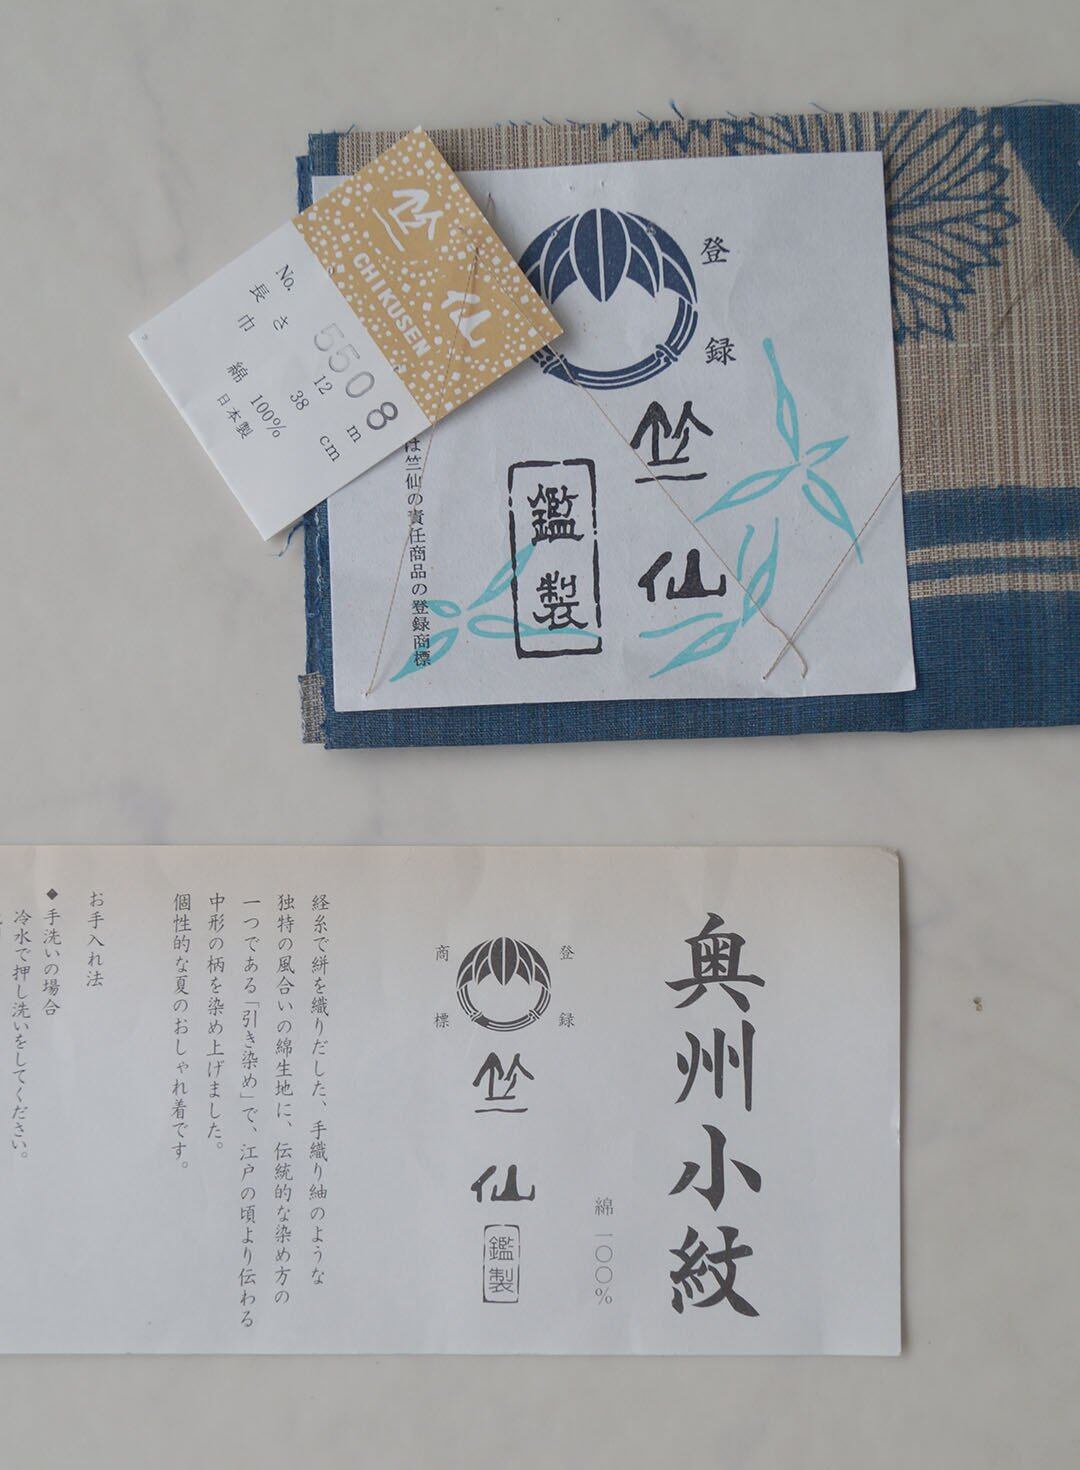 竺仙
CHIKUSEN
No. 5508
長さ 12 m
巾 38 cm
綿 100%
日本製
登録
竺仙
鑑製
は竺仙の責任商品の登録商標
奥州小紋
綿一〇〇%
登録
商標
竺仙
鑑製
経糸で絣を織りだした、手織り紬のような
独特の風合いの綿生地に、伝統的な染め方の
一つである「引き染め」で、江戸の頃より伝わる
中形の柄を染め上げました。
個性的な夏のおしゃれ着です。
お手入れ法
◆手洗いの場合
冷水で押し洗いをしてください。